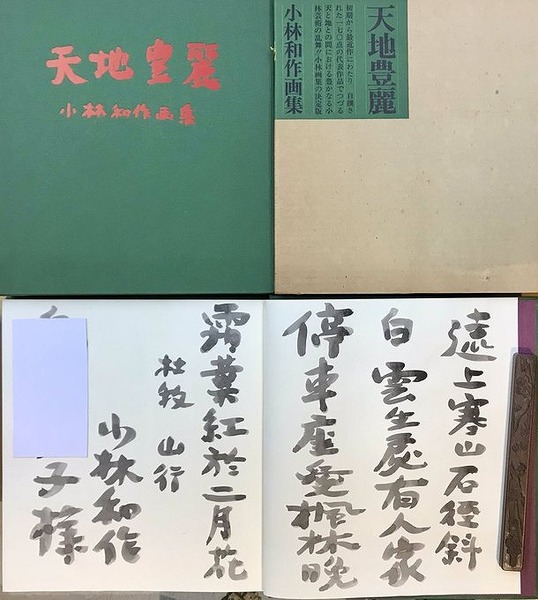 天地豊麗
小林和作画集
天地豊麗
初期から最近作にわたり、自撰さ
れた一七〇点の代表作品でつづる
天と地との間における豊かなる小
林芸術の乱舞!!小林画集の決定版
小林和作画集
遠上寒山石径斜
白雲生処有人家
停車座愛楓林晩
霜葉紅於二月花
杜牧 山行
小林和作
子様